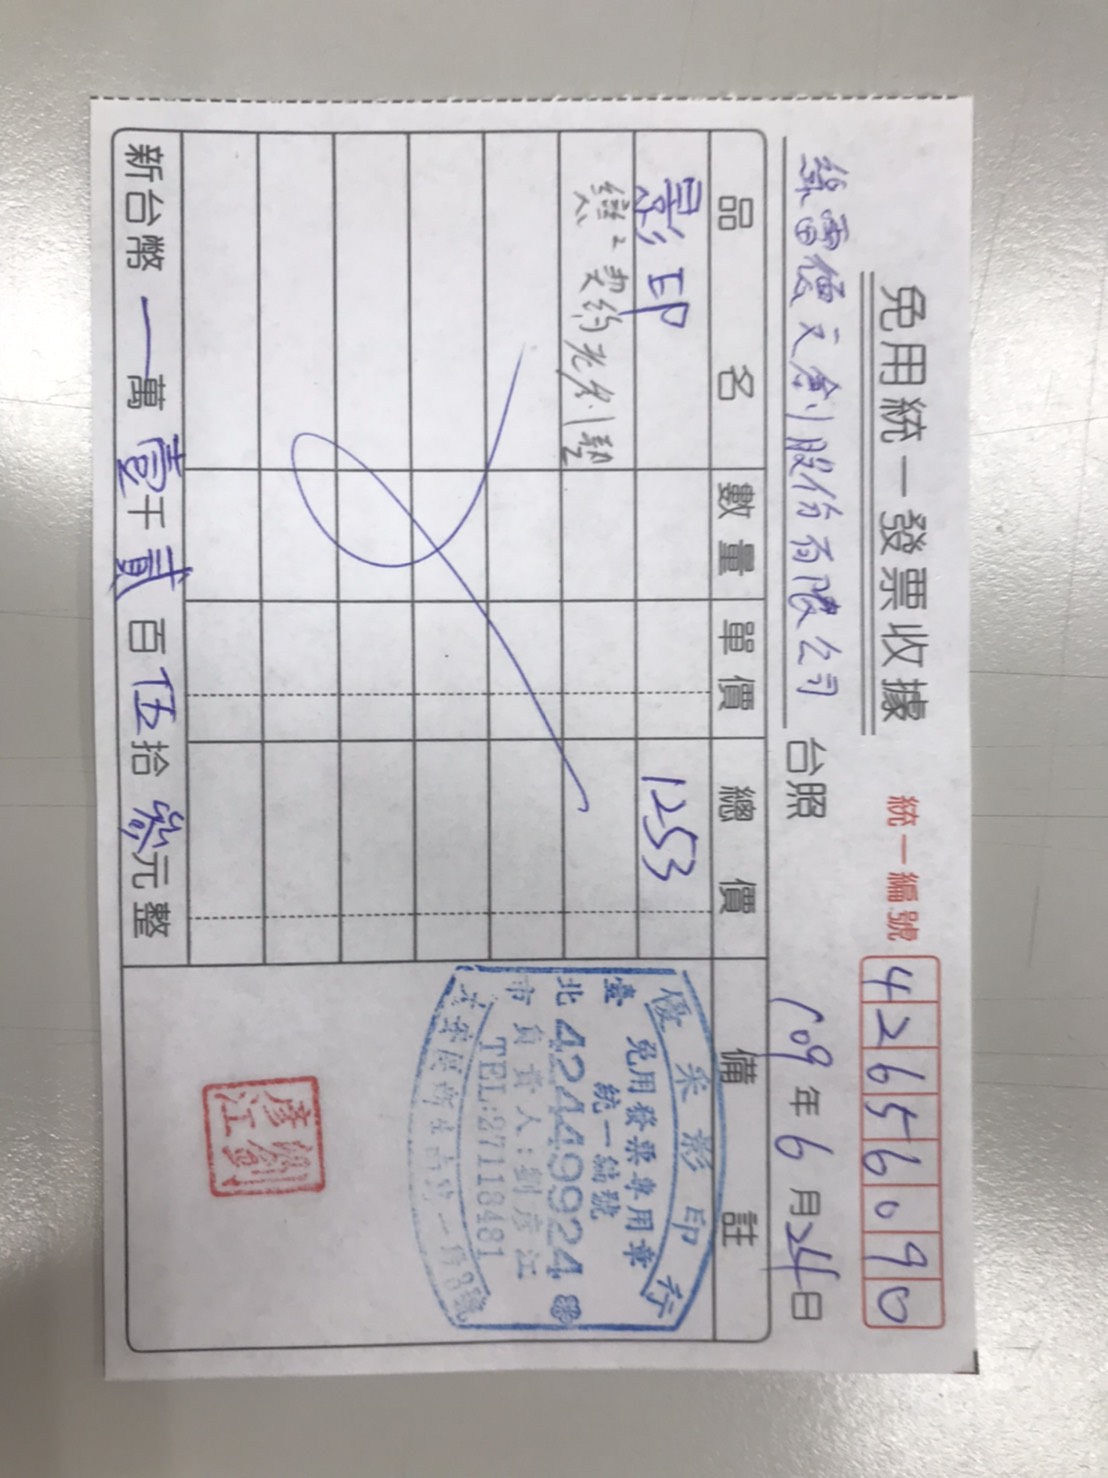 免用統一發票收據
統一編號 42656090
綠雷德文創股份有限公司 台照
109年6月24日
品名 數量 單價 總價 備註
影印 1253
契約
優采影印行
免用發票專用章
統一編號
臺北市
42449924
負責人:劉彥江
TEL:27118481
大安區新生南路一段3號
劉彥江
新台幣 一萬壹千貳百伍拾參元整